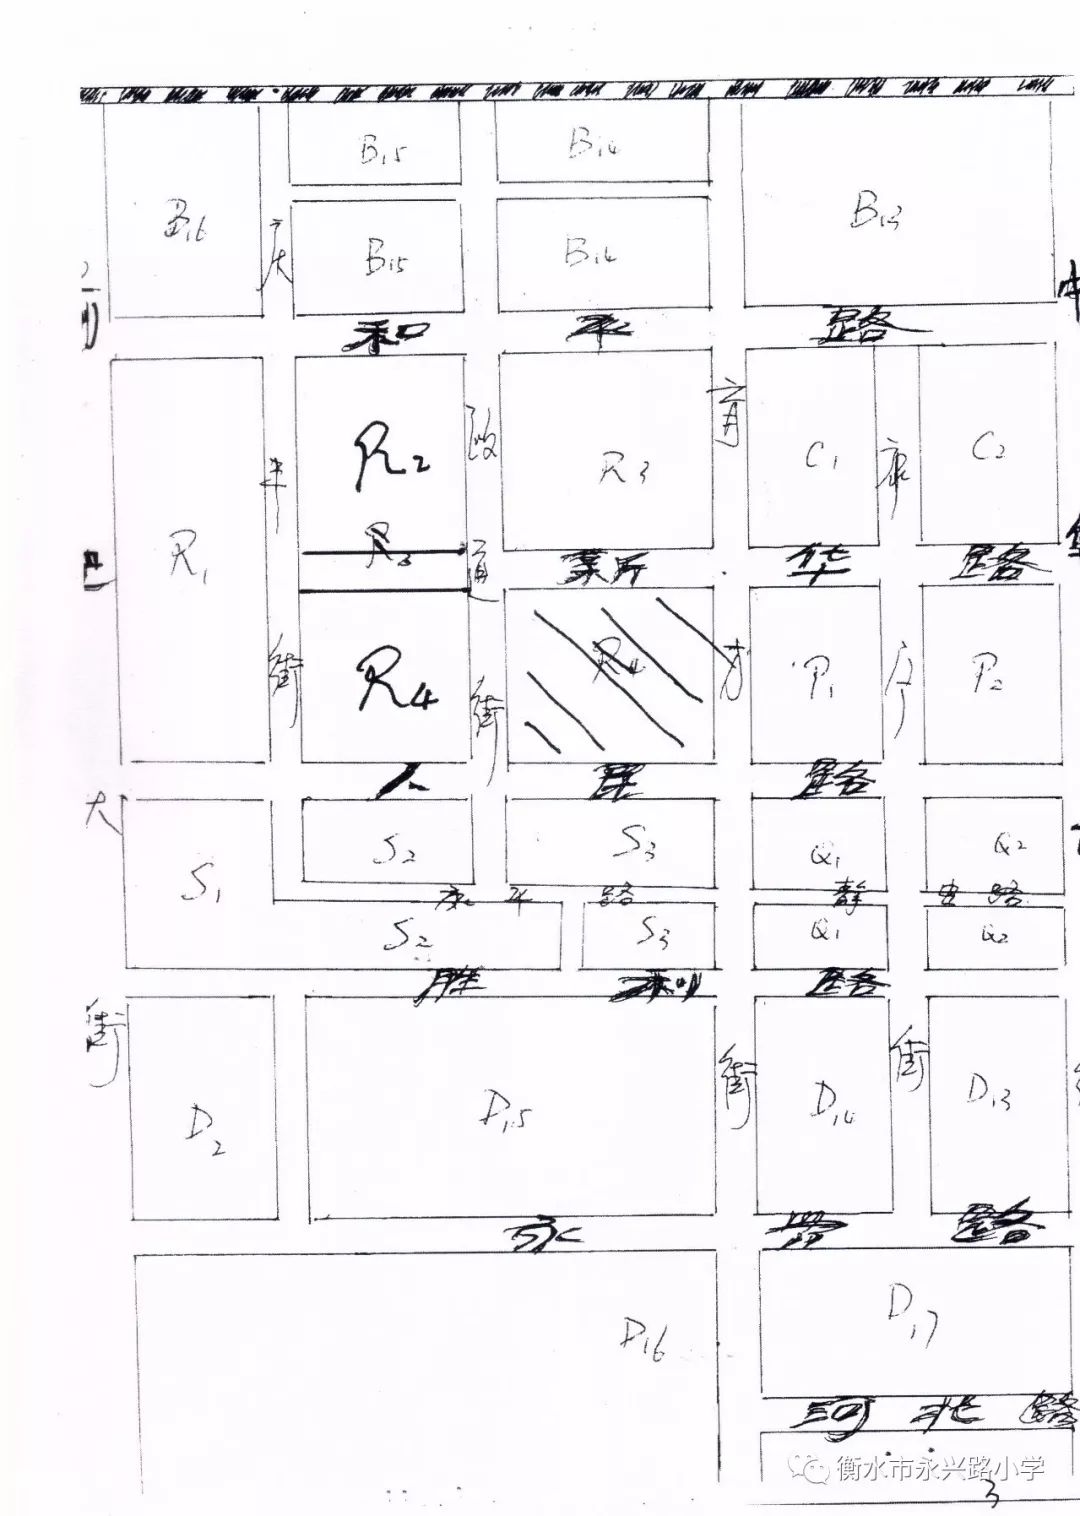 B15
B14
B16
B13
庆
B15
B14
和 平 路
育
R2
政
C1
康
C2
R3
丰
R3
R1
道
某所
华 路
R4
街
R4
街
才
P1
P2
人 民 路
大
S2
S3
Q1
Q2
S1
康 平 路
静 路
S2
S3
Q1
Q2
胜 利 路
街
街
街
D2
D15
D14
D13
永 兴 路
D16
D17
河 北 路
衡水市永兴路小学
3